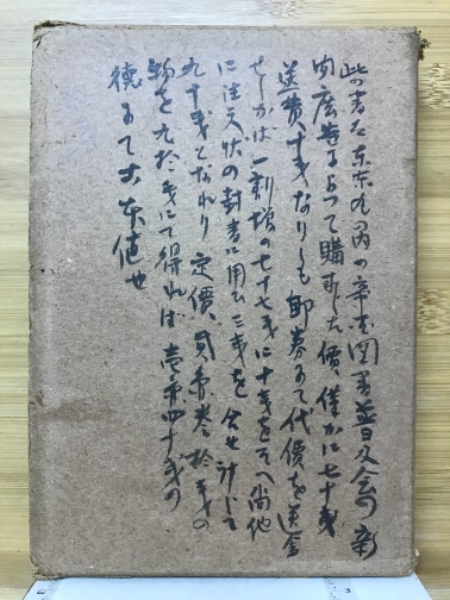 此の書は東京丸ノ内の帝国図書普及会の新
聞広告によつて購求した價、僅かに七十銭
送費、十銭、なりしも郵券にて代價を送金
せしかば一割増の七十七銭に十銭をそへ尚他
に注文状の封書に用ひ三銭を合せ計して
九十銭となれり定價、貳圓参拾銭の
物を九拾銭にて得れば壱圓四十銭の
徳にて